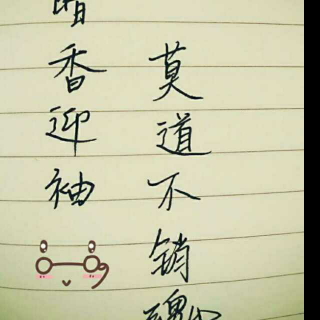 暗香迎袖
莫道不销魂